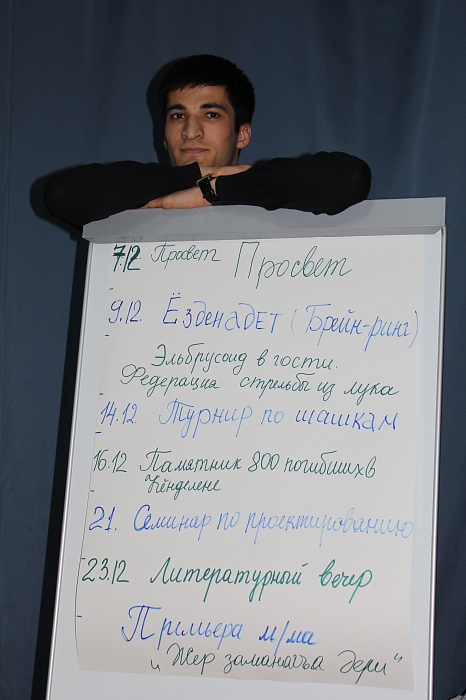 7.12. Правет Просвет
9.12. Ёзденадет (Брейн-ринг)
Эльбрусоид в гости.
Федерация стрельбы из лука
14.12. Турнир по шашкам
16.12 Памятник 800 погибших в
Кёнделене
21. Семинар по проектированию
23.12 Литературный вечер
Премьера м/ма
и Жер заманагъа дери"